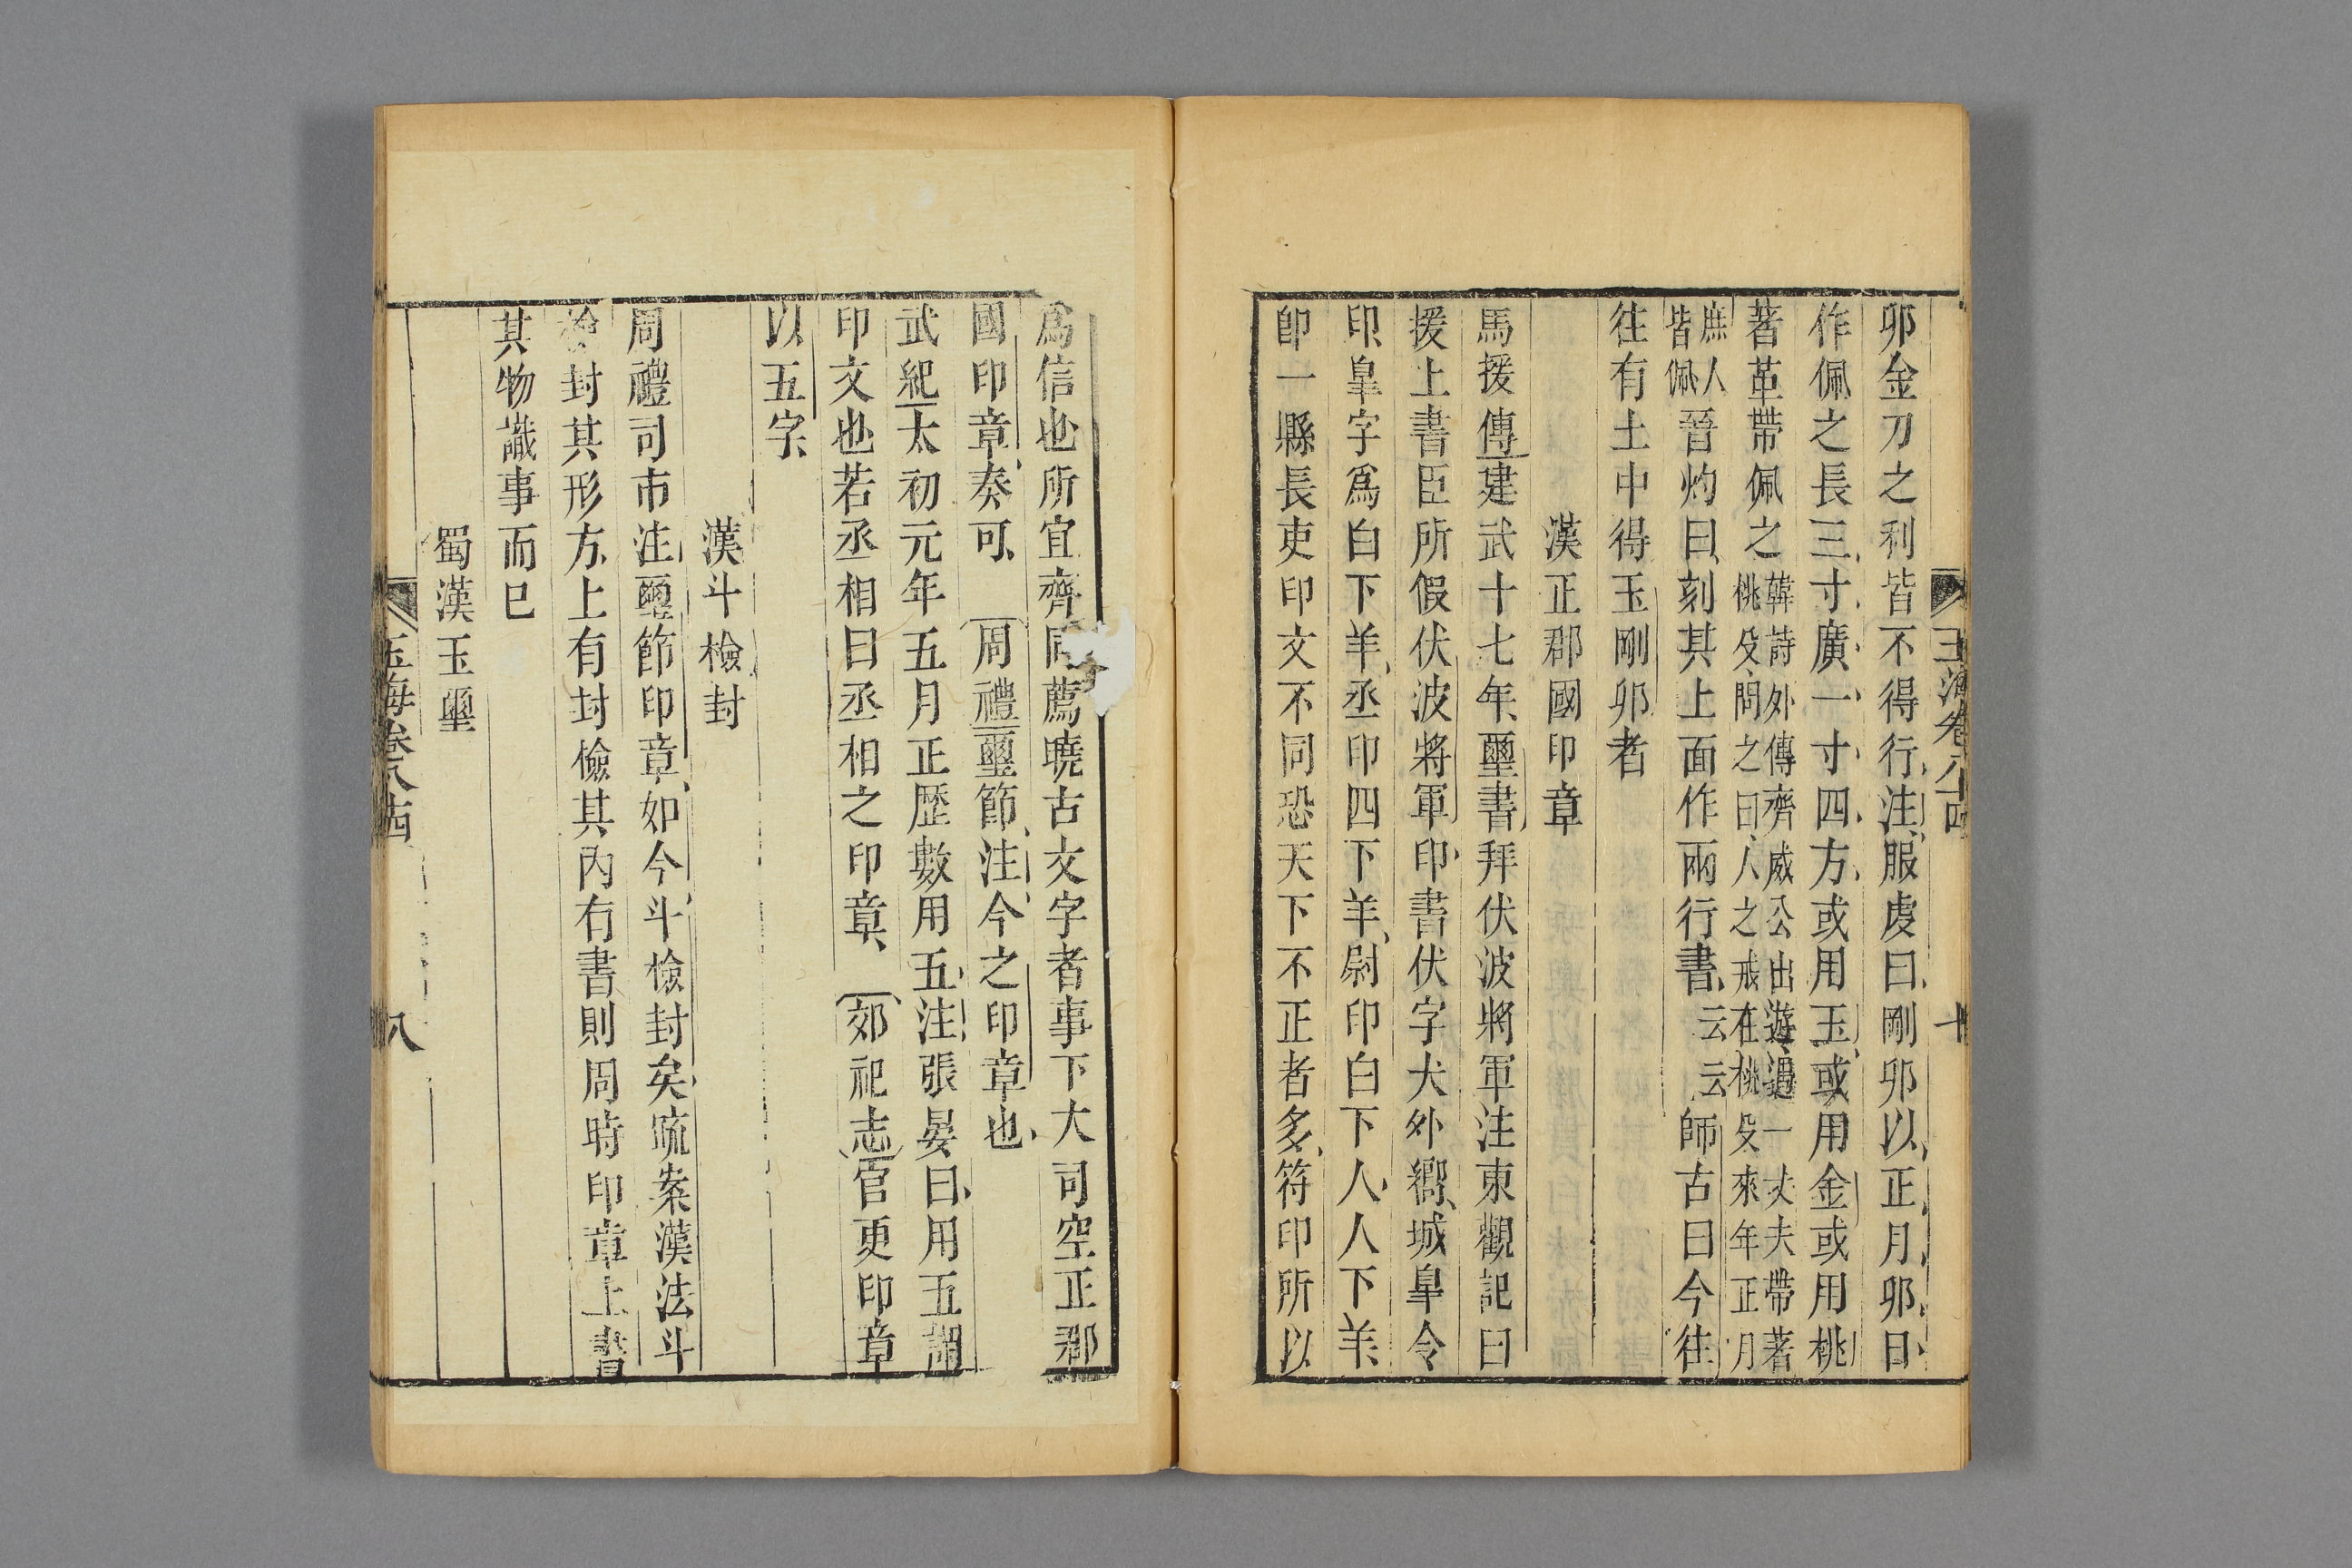 玉海卷八十四
十
卯金刀之利皆不得行注服虔曰剛卯以正月卯日
作佩之長三寸廣一寸四方或用玉或用金或用桃
著革帶佩之韓詩外傳齊威公出遊遇一丈夫帶著桃殳問之曰人之戒在桃殳來年正月
庶人皆佩晉灼曰刻其上面作兩行書云云師古曰今往
往有土中得玉剛卯者
漢正郡國印章
馬援傳建武十七年璽書拜伏波將軍注東觀記曰
援上書臣所假伏波將軍印書伏字犬外嚮城皐令
印皐字爲白下羊丞印四下羊尉印白下人人下羊
卽一縣長吏印文不同恐天下不正者多符印所以
爲信也所宜齊同薦曉古文字者事下大司空正郡
國印章奏可周禮璽節注今之印章也
武紀太初元年五月正歷數用五注張晏曰用五謂
印文也若丞相曰丞相之印章郊祀志官更印章
以五字
漢斗檢封
周禮司市注璽節印章如今斗檢封矣疏案漢法斗
檢封其形方上有封檢其內有書則周時印章上書
其物識事而已
蜀漢玉璽
玉海卷八十四
八